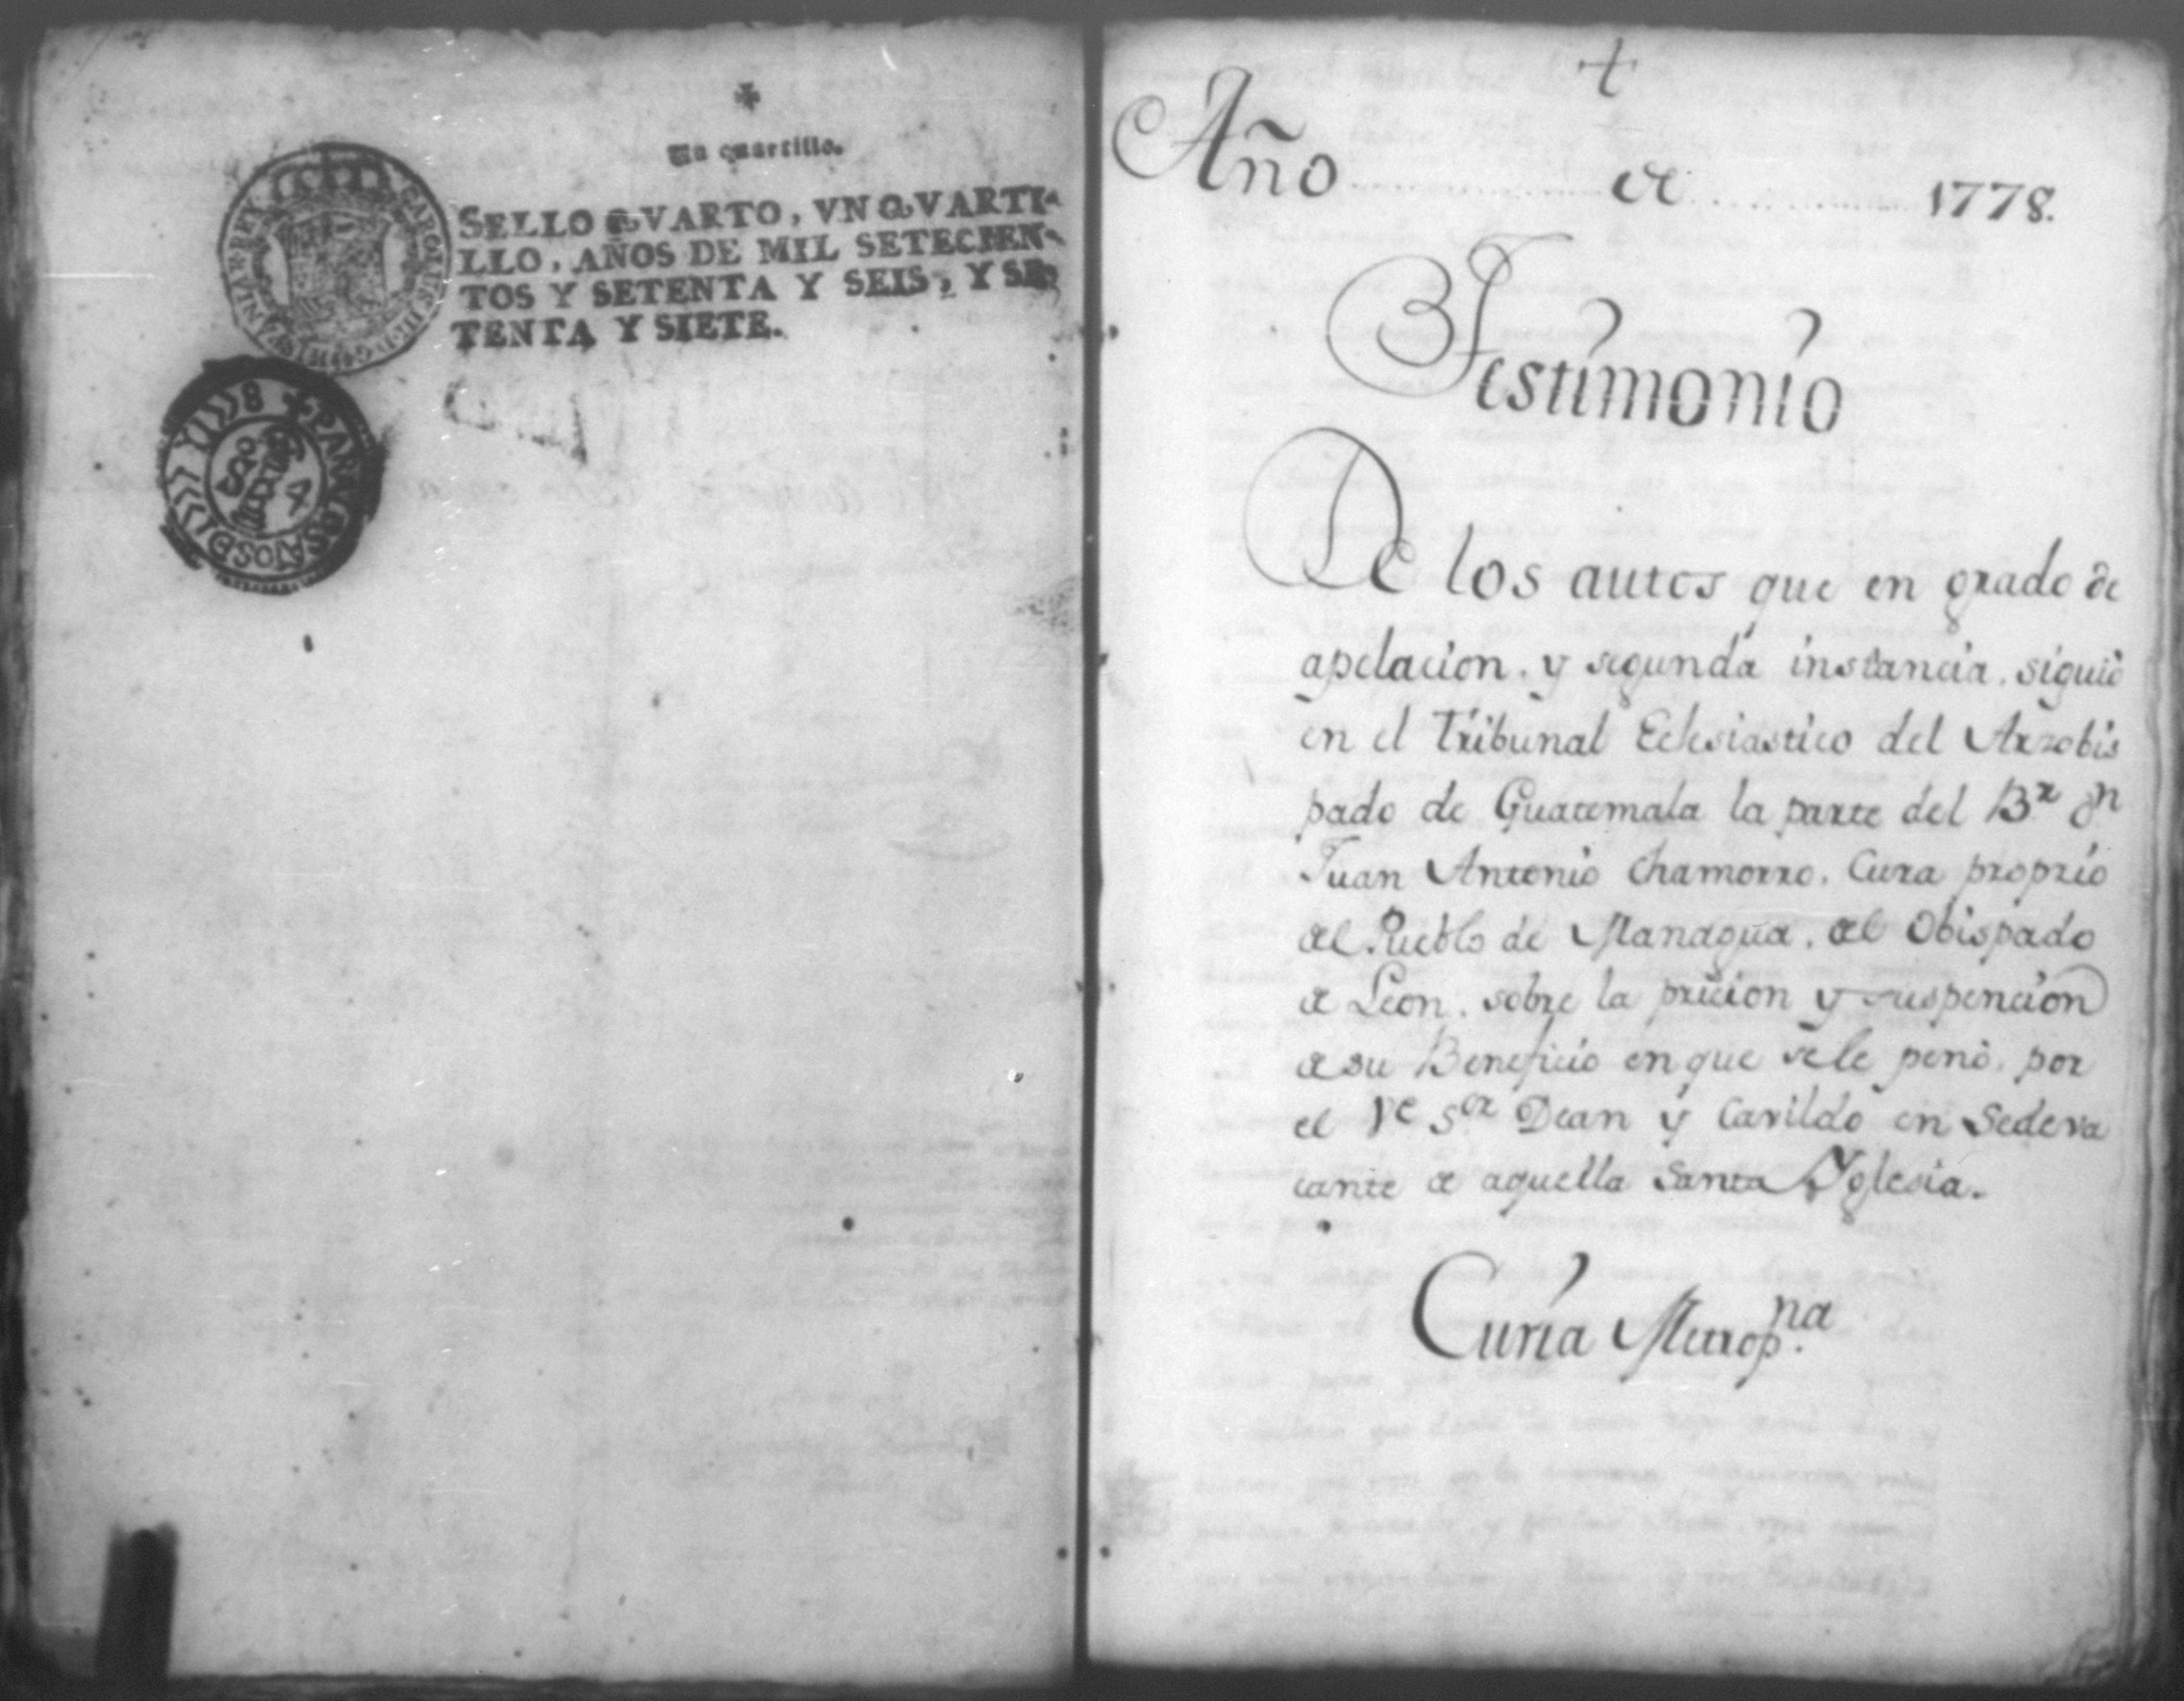 Un quartillo.
SELLO QVARTO, VN QVARTI-
LLO, AÑOS DE MIL SETECIEN-
TOS Y SETENTA Y SEIS, Y SE-
TENTA Y SIETE.
PARA LOS AÑOS DE
+
Año de 1778.
Testimonio
De los autos que en grado de
apelacion, y segunda instancia, siguió
en el Tribunal Eclesiastico del Arzobis
pado de Guatemala la parte del Br. Dn
Juan Antonio Chamorro, Cura proprio
del Pueblo de Managua, del Obispado
de Leon, sobre la pricion y suspencion
de su Beneficio en que sele penó, por
el Ve Sor Dean y Cavildo en Sedeva
cante de aquella Santa Yglesia.
Curia Metropna.